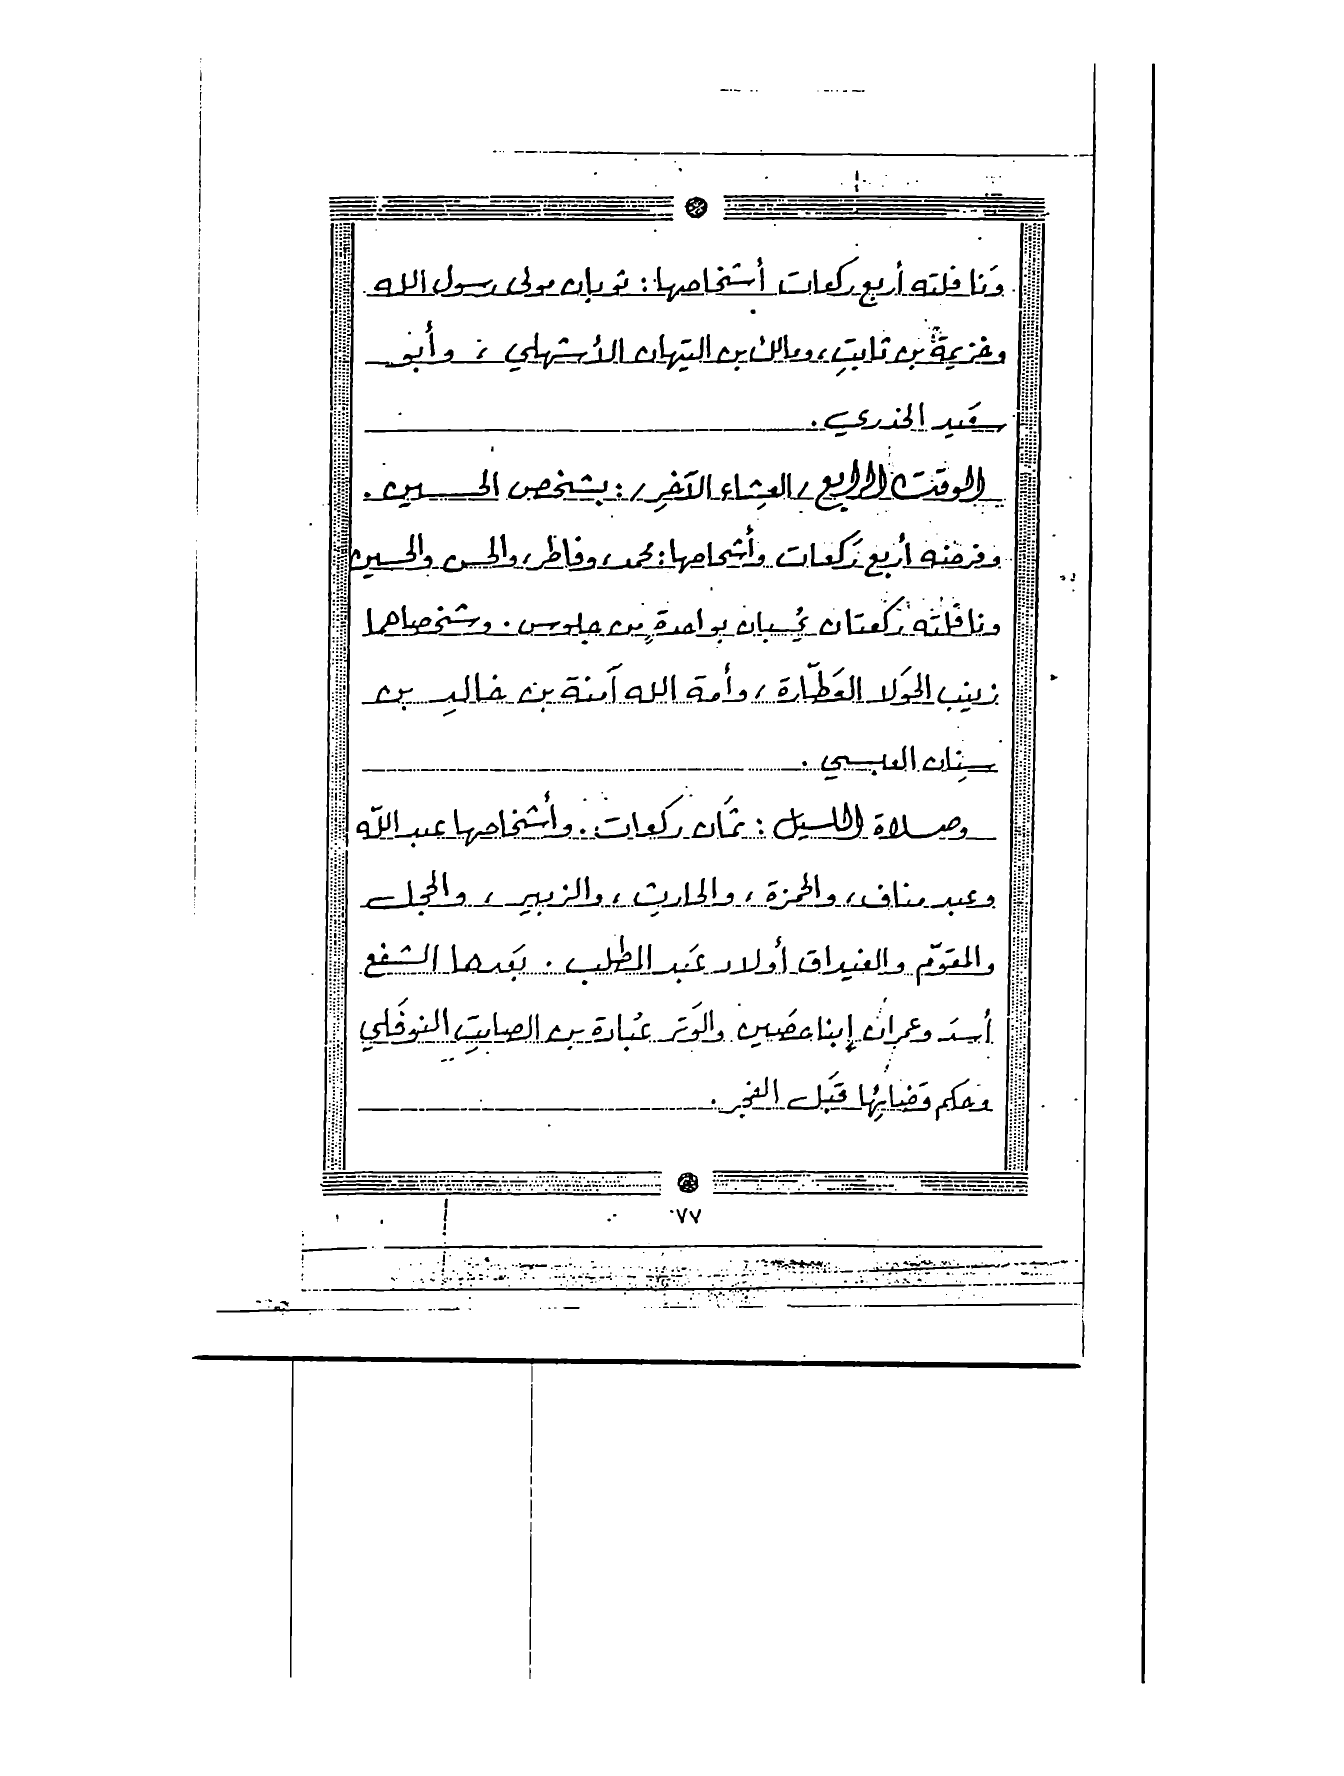 وَنافلته أربع ركعات أشخاصها: ثوبان مولى رسول الله
وخزيمة بن ثابتِ، ومالك بن التيهان الأشهلي، وأبو
سعَيد الخدري.
الوقت الرابع / العِشاء الآخر /: بشخص الحسين.
وفرضه أربع رَكعات وأشخاصها: محمد، وفاطر، والحسن والحسين
ونافلَته رَكعتان يحُسبان بواحدةٍ من جلوس. وشخصاهما
زينب الحَولا العَطّارة، وأمة الله آمنة بن خالد بن
سِنان العبسي.
وصلاة الليل: ثمَان ركعات. وأشخاصها عبد اللّه
وعبد مناف، والحمزة، والحارث، والزبير، والحجل
والمقوّم والغيداق أولاد عَبد المطلب. بَعدها الشفع
أسدَ وعمران إبنا حصَين والوَتر عُبادة بن الصابتِ النوفَلي
وحكم قضَايئها قَبل الفجر.
٧٧